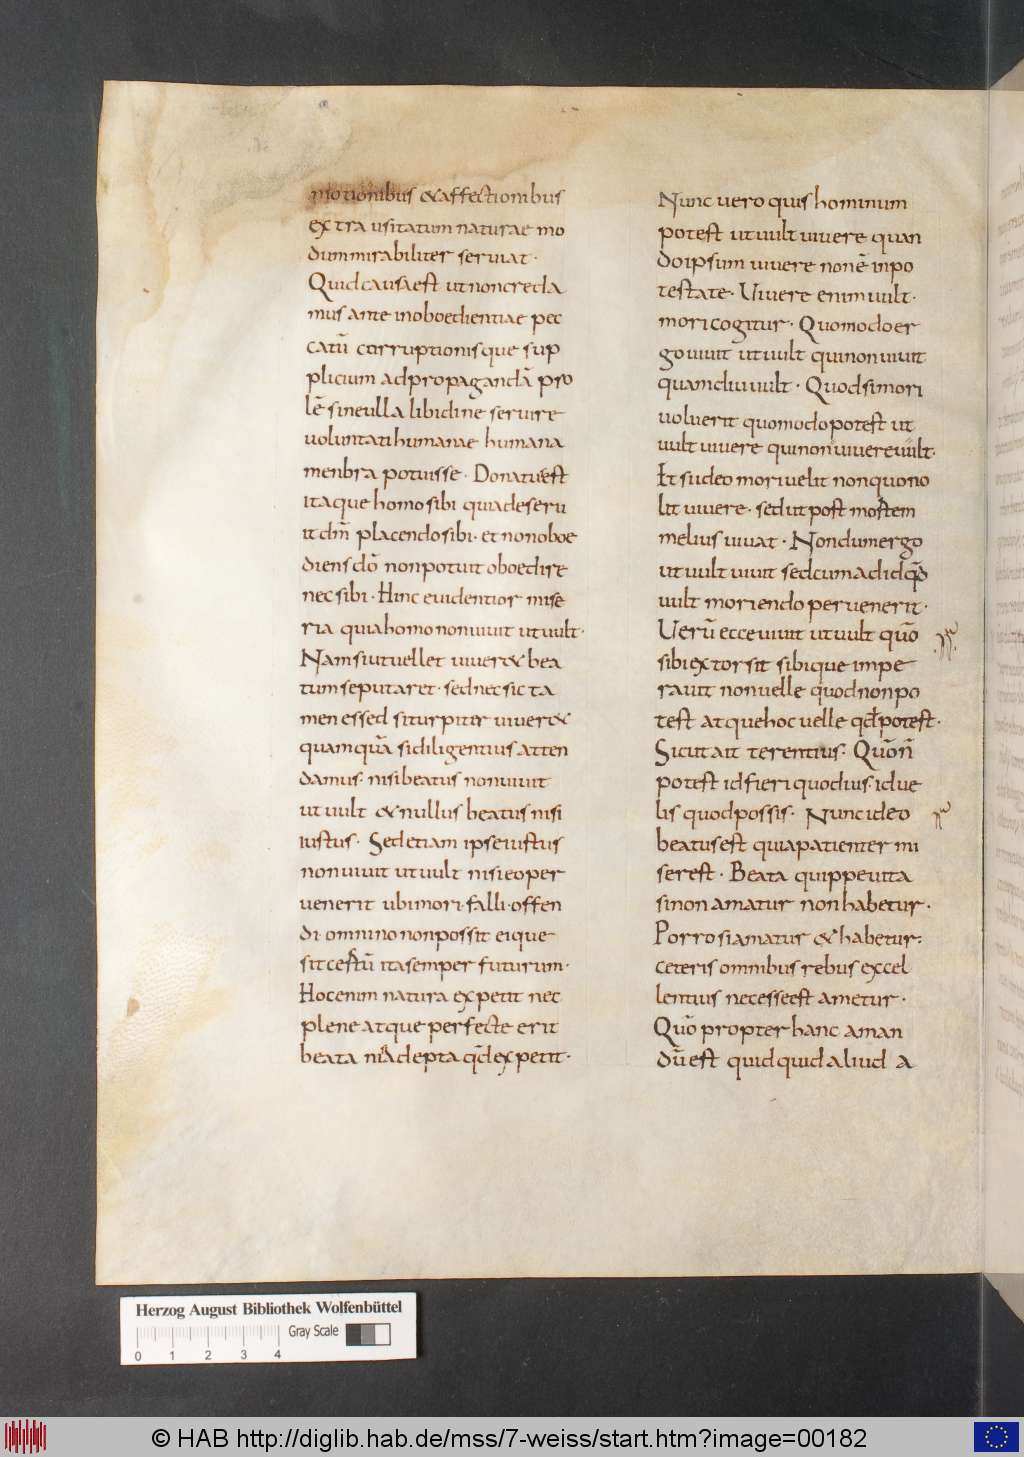 motionibus &affectionibus
extra usitatum naturae mo
dummirabiliter seruiat·
Quidcausaest utnoncreda
mus ante inoboedientiae pec
catū corruptionisque sup
plicium adpropagandā pro
lē sineulla libidine seruire
uoluntatihumanae humana
menbra potuisse· Donatusest
itaque homosibi quiadeseru
it dm̄ placendosibi· et nonoboe
diens dō nonpotuit oboedire
nec sibi· Hinc euidentior mise
ria quiahomo nonuiuit utuult·
Namsiutuellet uiuer& bea
tumseputaret· sednec sic ta
men esset siturpiter uiuer&
quamquā sidiligentius atten
damus· nisibeatus nonuiuit
ut uult & nullus beatus nisi
iustus· Sedetiam ipseiustus
nonuiuit utuult nisieoper
uenerit ubimori·falli·offen
di· omnino nonpossit eique
sit certū itasemper futurum·
Hocenim natura expetit nec
plene atque perfecte erit
beata niAdepta qd̄expetit·
Nunc uero quis hominum
potest utuult uiuere quan
doipsum uiuere nonē inpo
testate· Uiuere enimuult·
moricogitur· Quomodoer
gouiuit utuult quinonuiuit
quamdiuuult· Quodsimori
uoluerit quomodopotest ut
uult uiuere quinonuiuereuult·
Et siideo moriuelit nonquono
lit uiuere· sedutpost mortem
melius uiuat· Nondumergo
utuult uiuit sedcumadidqd̄
uult moriendo peruenerit·
Uerū ecceuiuit utuult quō
sibiextorsit sibique impe
rauit nonuelle quodnonpo
test atquehoc uelle qd̄potest·
Sicutait terentius· Quōn̄
potest idfieri quoduis·idue
lis quodpossis· Nuncideo
beatusest quiapatienter mi
serest· Beata quippeuita
sinon amatur nonhabetur·
Porrosiamatur &habetur:
ceteris omnibus rebus excel
lentius necesseest ametur·
Quō propter hanc aman
dū est quidquid aliud a
Herzog August Bibliothek Wolfenbüttel
Gray Scale
0 1 2 3 4
© HAB http://diglib.hab.de/mss/7-weiss/start.htm?image=00182